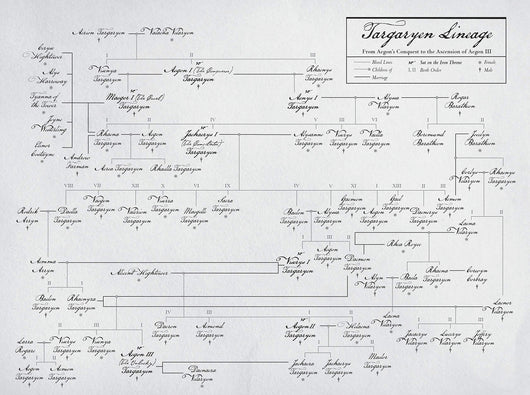 Targaryen Lineage
From Aegon's Conquest to the Ascension of Aegon III
Blood Lines
Sat on the Iron Throne
Female
Children of
I, II
Birth Order
Male
Marriage
Aerion
Targaryen
Valaena
Velaryon
Ceryse
Hightower
Alys
Harroway
Tyanna of
the Tower
Jeyne
Westerling
Elinor
Costayne
I
II
III
Visenya
Targaryen
Aegon I (The Conqueror)
Targaryen
Rhaenys
Targaryen
Maegor I (The Cruel)
Targaryen
Aenys I
Targaryen
Alyssa
Velaryon
Rogar
Baratheon
Rhaena
Targaryen
Aegon
Targaryen
Jaehaerys I
Targaryen
Alysanne
Targaryen
Viserys
Targaryen
Vaella
Targaryen
Boremund
Baratheon
Jocelyn
Baratheon
Andrew
Farman
Aerea Targaryen
Rhaella Targaryen
Corlys
Velaryon
Rhaenys
Targaryen
VIII
VII
XII
X
VI
IX
IV
V
XI
I
III
II
Rodrik
Arryn
Daella
Targaryen
Vaegon
Targaryen
Targaryen
Viserra
Targaryen
Maegelle
Targaryen
Saera
Targaryen
Baelon
Targaryen
Alyssa
Targaryen
Gaemon
Targaryen
Aegon
Targaryen
Gael
Targaryen
Daenerys
Targaryen
Aemon
Targaryen
Laena
Velaryon
Rhea Royce
Aemma
Arryn
Alicent Hightower
Viserys I
Targaryen
Aegon
Targaryen
Daemon
Targaryen
Alyn
Velaryon
Baela
Targaryen
Rhaena
Targaryen
Corwyn
Corbray
Baelon
Targaryen
Rhaenyra
Targaryen
Laenor
Velaryon
Daeron
Targaryen
Aemond
Targaryen
Aegon II
Targaryen
Helaena
Targaryen
Laena
Velaryon
Jacaerys
Velaryon
Lucerys
Velaryon
Joffrey
Velaryon
Larra
Rogare
Viserys
Targaryen
Visenya
Targaryen
Aegon III
Targaryen
Daenaera
Velaryon
Jaehaera
Targaryen
Jaehaerys
Targaryen
Maelor
Targaryen
Aegon
Targaryen
Aemon
Targaryen